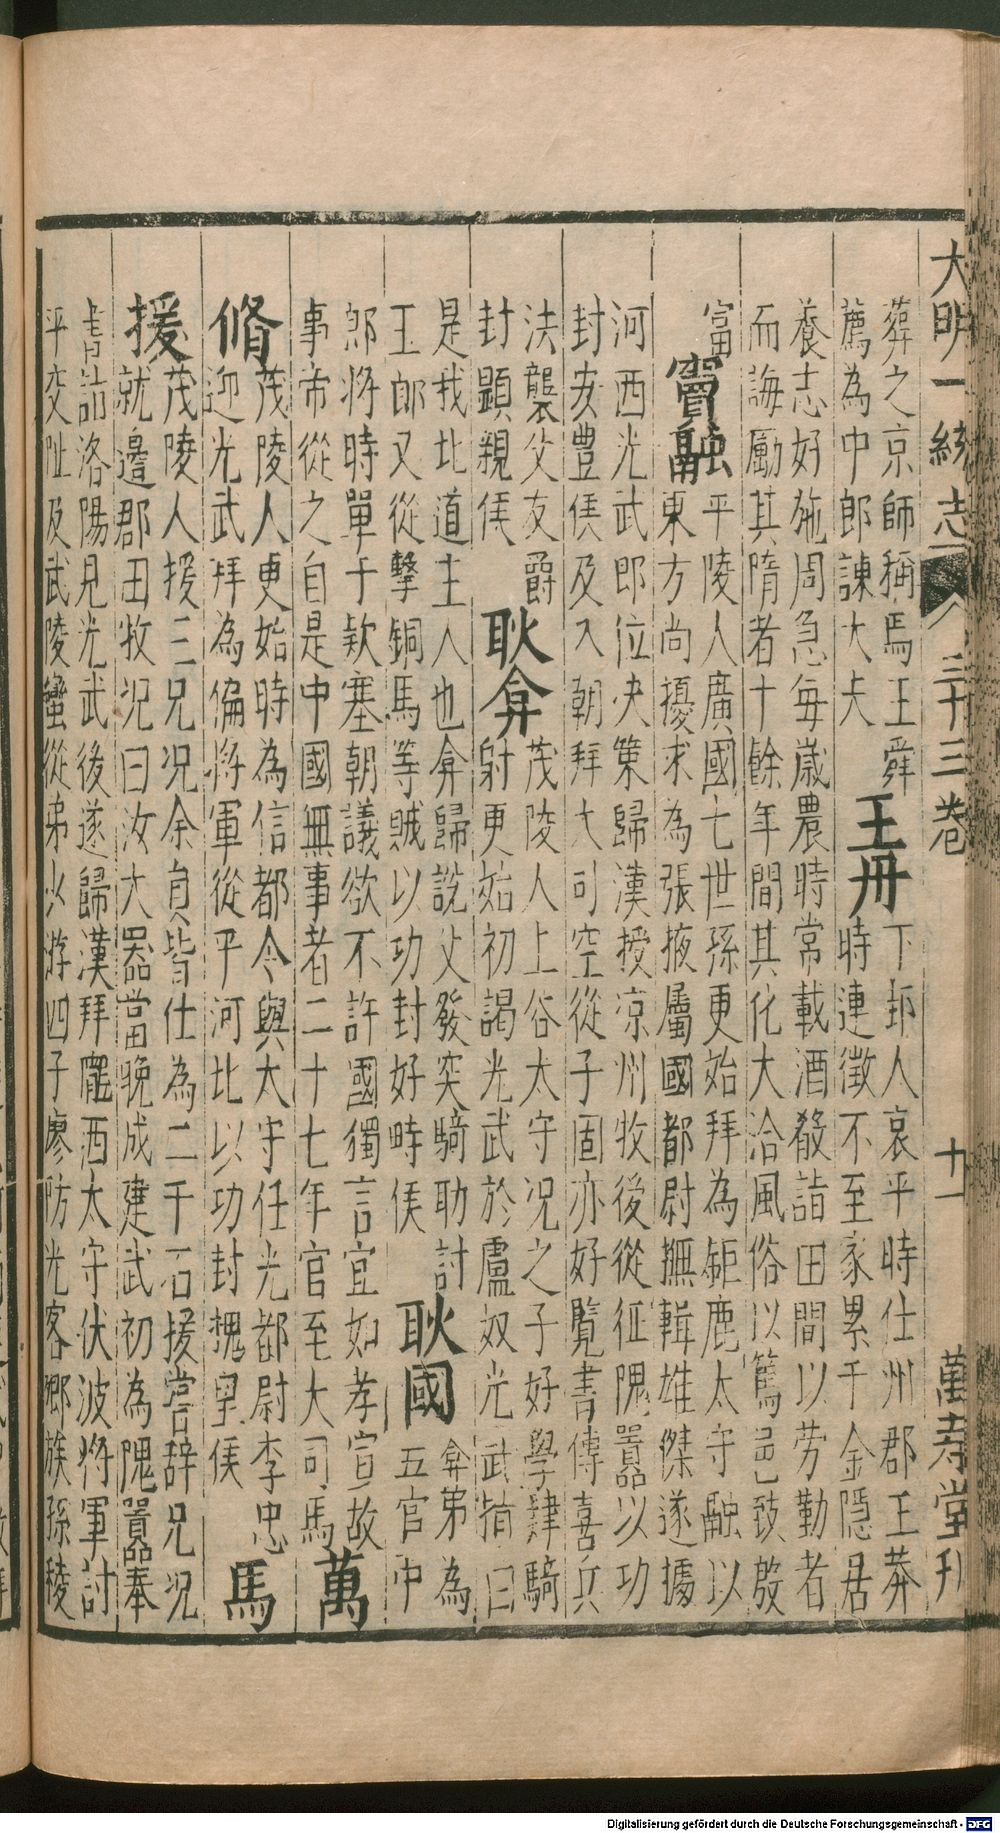 大明一統志 三十三卷 十一 萬壽堂刊
葬之京師稱焉王舜
薦為中郎諫大夫
王丹
下邽人哀平時仕州郡王莽
時連徵不至家累千金隱居
養志好施周急每歲農時常載酒殽詣田間以劳勤者
而誨勵其隋者十餘年間其化大洽風俗以篤邑致殷
富
竇融
平陵人廣國七世孫更始拜為鉅鹿太守融以
東方尚擾求為張掖屬國都尉撫輯雄傑遂據
河西光武即位决策歸漢授凉州牧後從征隗囂以功
封安豊侯及入朝拜大司空從子固亦好覽書傳喜兵
法襲父友爵
封顕親侯
耿弇
茂陵人上谷太守况之子好學肄騎
射更始初謁光武於盧奴光武指曰
是我北道主人也弇歸說父發突騎助討
王郎又從擊銅馬等賊以功封好畤侯
耿國
弇弟為
五官中
郎将時單于欵塞朝議欲不許國獨言宜如孝宣故
事帝從之自是中國無事者二十七年官至大司馬
萬
脩
茂陵人更始時為信都令與大守任光都尉李忠
迎光武拜為偏将軍從平河北以功封槐里侯
馬
援
茂陵人援三兄况余員皆仕為二千石援嘗辞兄况
就邉郡田牧况曰汝大器當晚成建武初為隗囂奉
書詣洛陽見光武後遂歸漢拜隴西太守伏波将軍討
平交趾及武陵蠻從弟少游四子廖防光客卿族孫稜
Digitalisierung gefördert durch die Deutsche Forschungsgemeinschaft - DFG